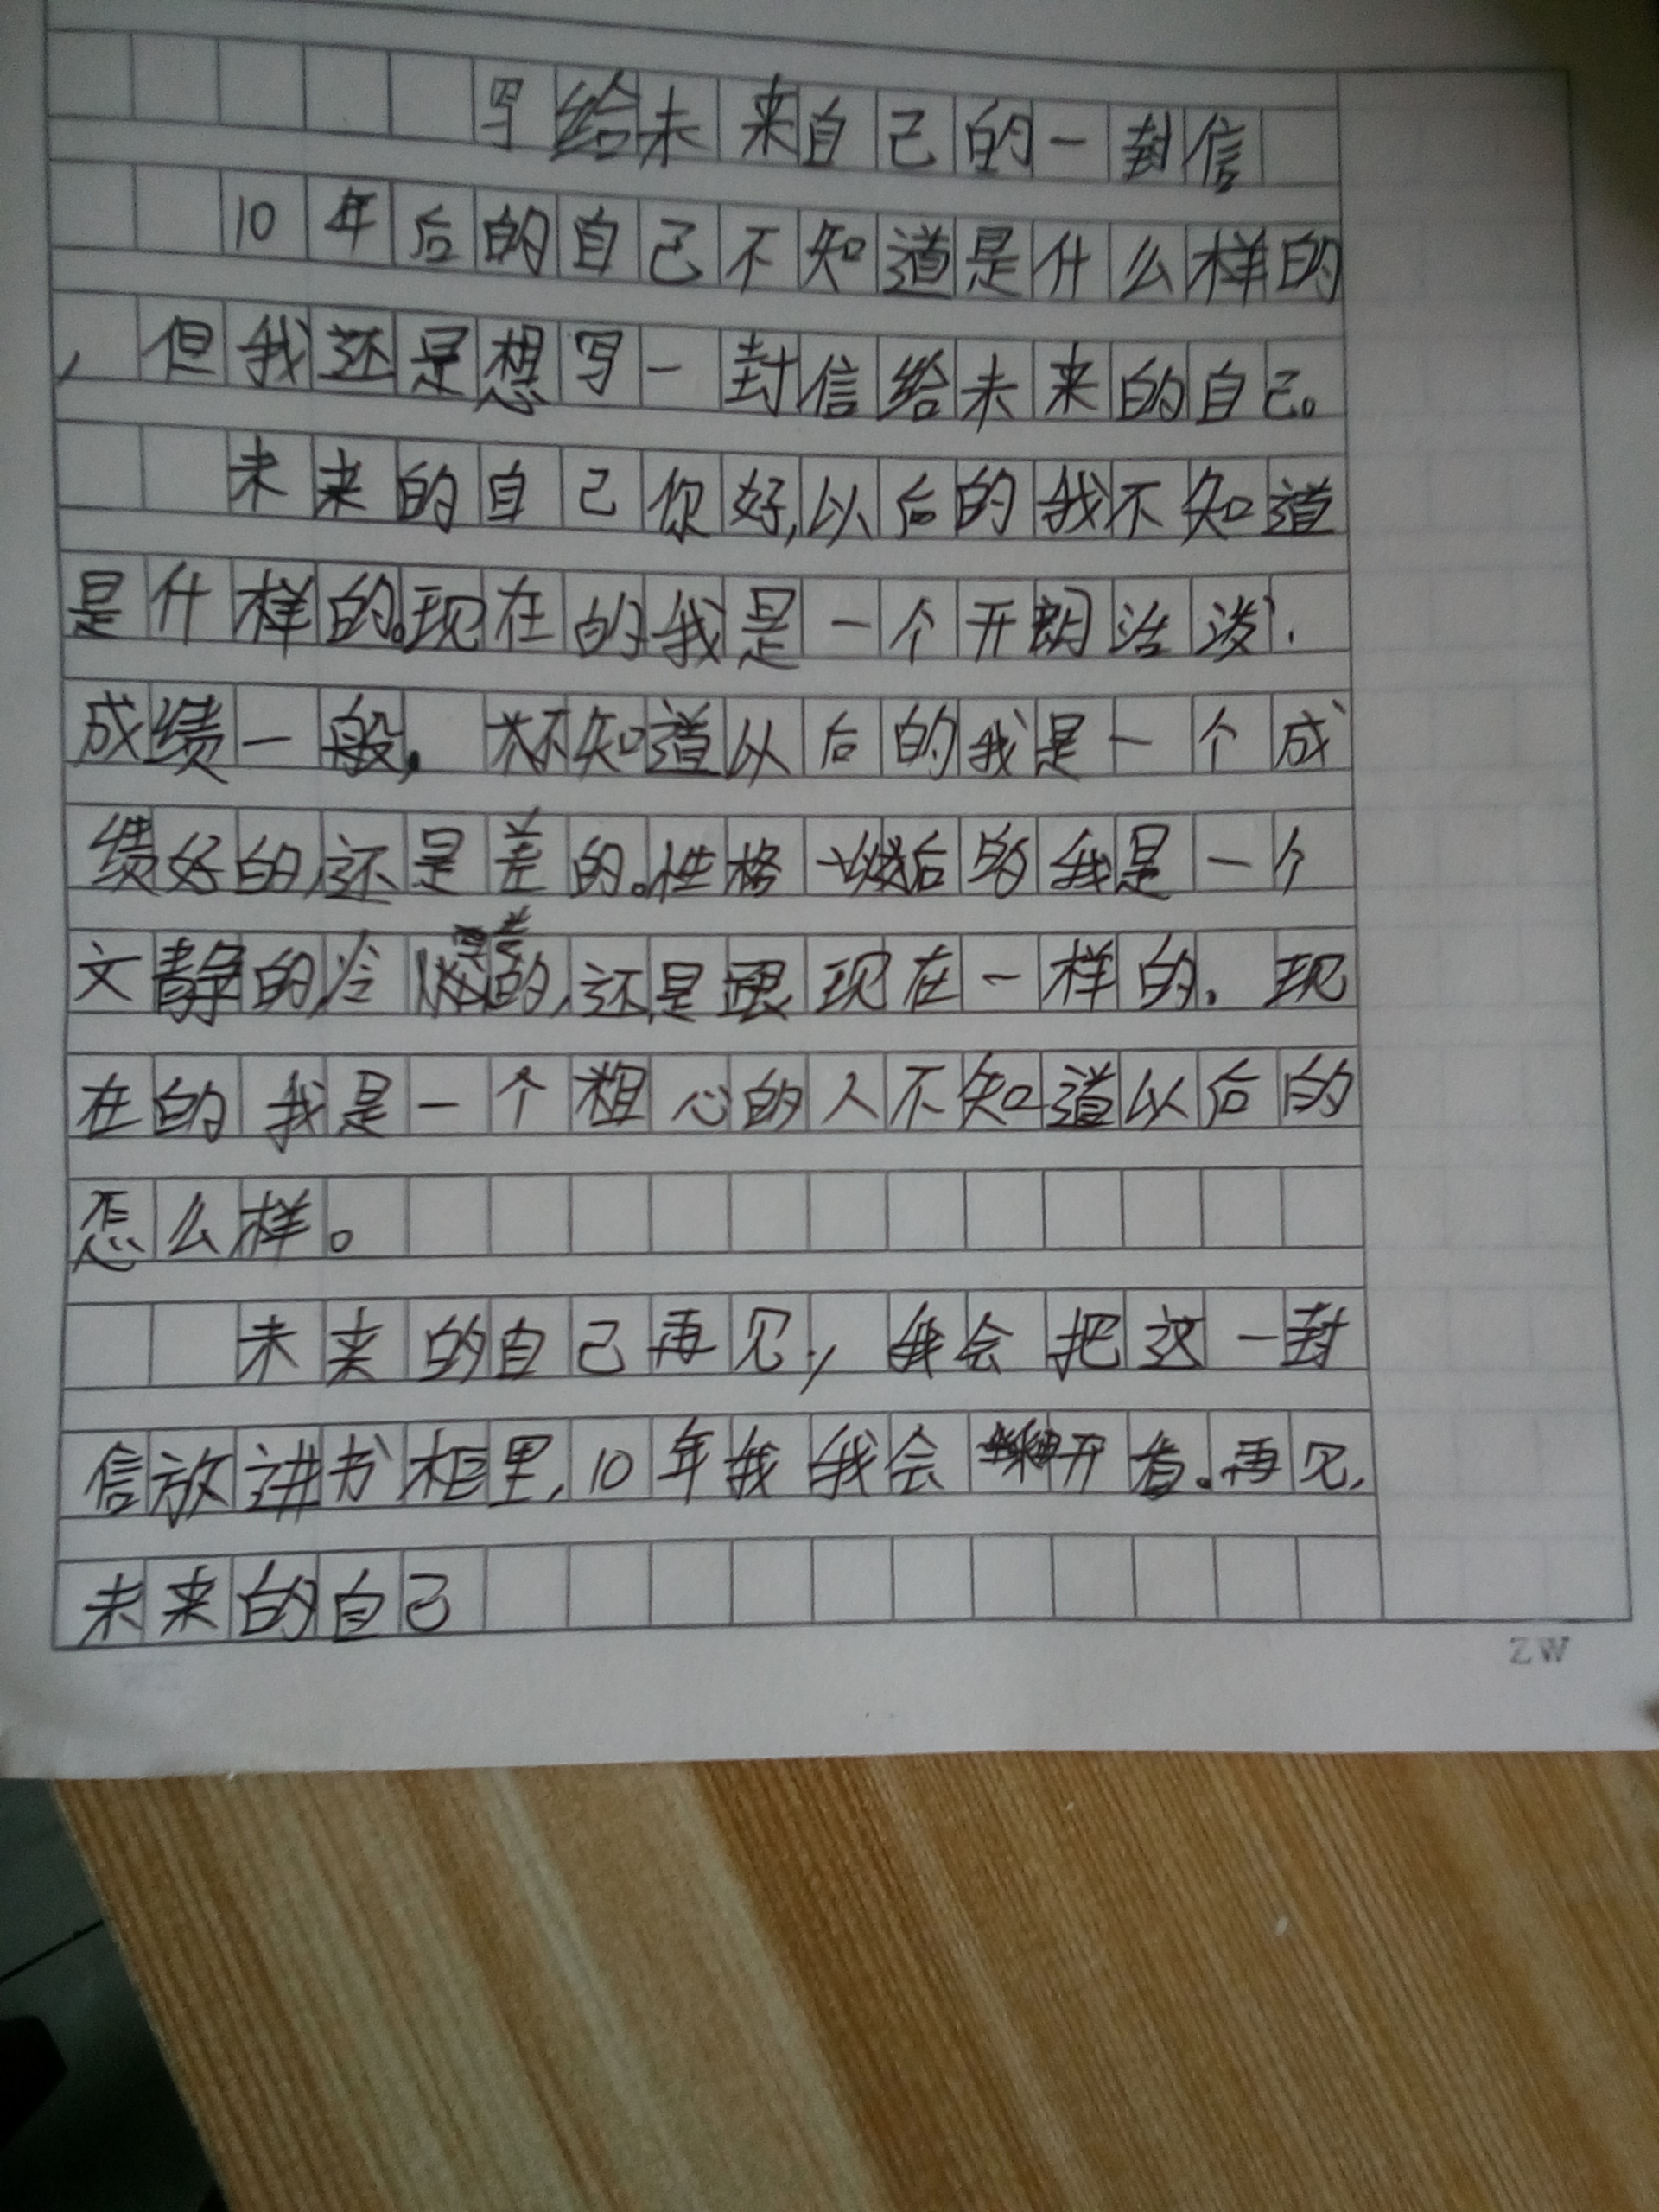 写给未来自己的一封信
10年后的自己不知道是什么样的
，但我还是想写一封信给未来的自己。
未来的自己你好，以后的我不知道
是什样的。现在的我是一个开朗活泼、
成绩一般，不知道以后的我是一个成
绩好的，还是差的。性格以后的我是一个
文静的，冷的，还是跟现在一样的。现
在的我是一个粗心的人不知道以后的
怎么样。
未来的自己再见，我会把这一封
信放进书柜里，10年我我会开看。再见，
未来的自己
ZW